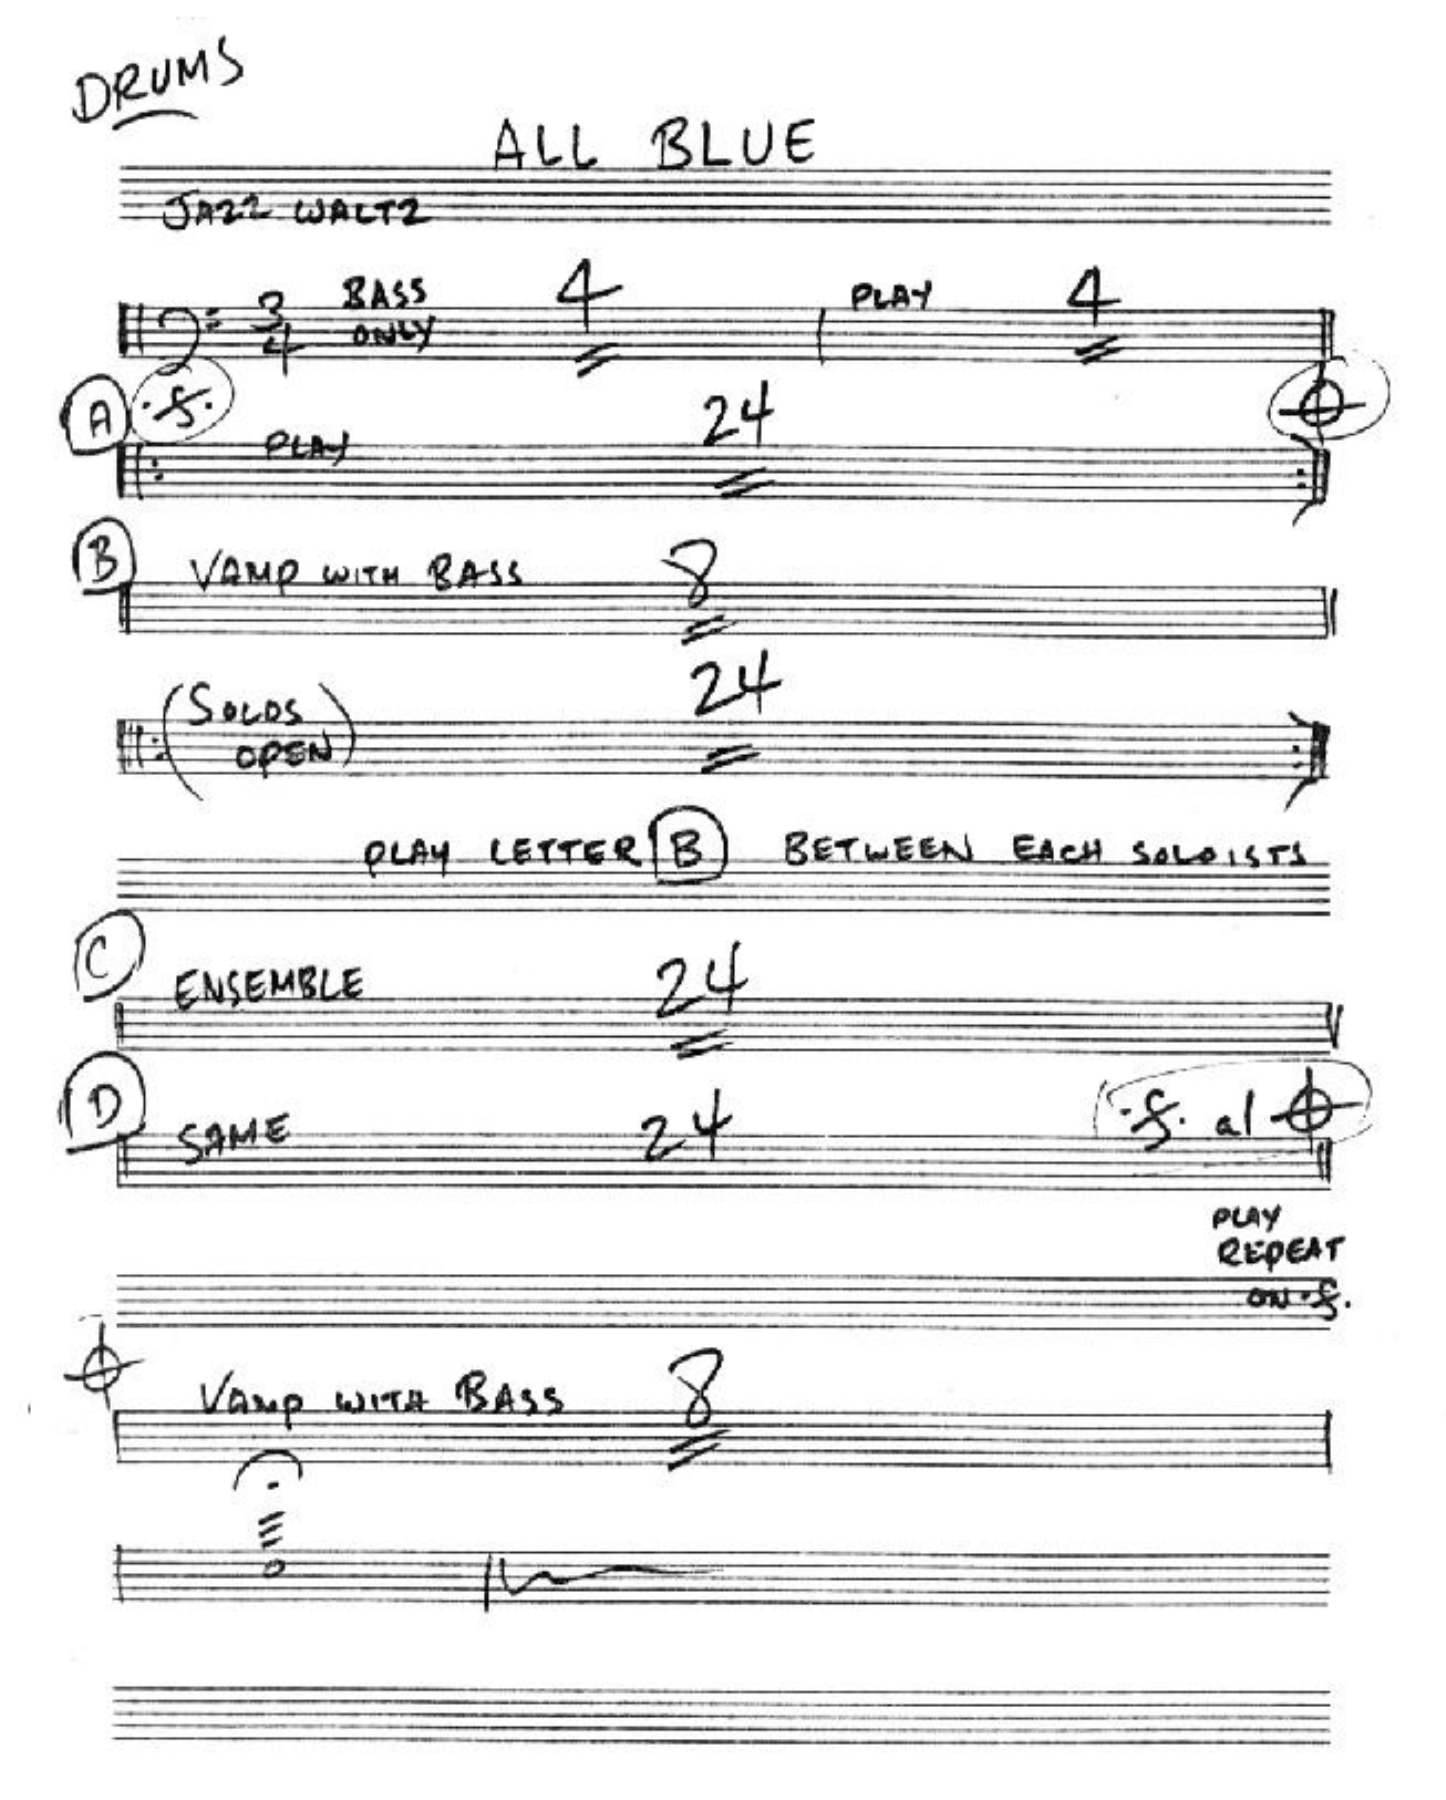 DRUMS
ALL BLUE
JAZZ WALTZ
3/4 BASS ONLY 4 PLAY 4
A
PLAY 24
B VAMP WITH BASS 8
(SOLOS OPEN) 24
PLAY LETTER B BETWEEN EACH SOLOISTS
C ENSEMBLE 24
D SAME 24 al
PLAY
REPEAT
ON
VAMP WITH BASS 8